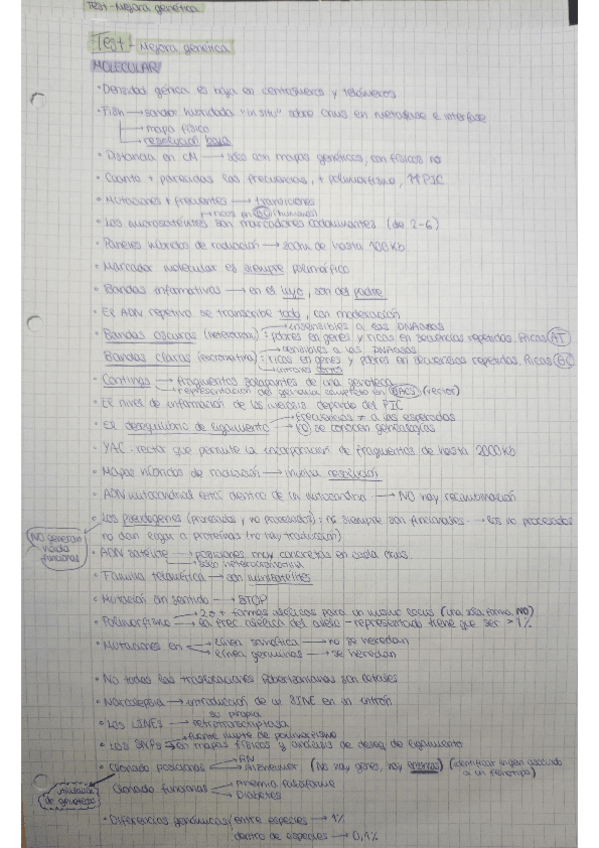 Test - Mejora genética
Test - Mejora genética
MOLECULAR
• Densidad génica es baja en centrómeros y telómeros
• Fish → sonda hibridada "in situ" sobre croms en metafase e interfase
→ mapa físico
→ resolución baja
• Distancia en cM → sólo con mapas genéticos, con físicos no
• Cuanto + parecidas las frecuencias, + polimorfismo, ↑↑ PIC
• Mutaciones + frecuentes → transiciones
→ ricos en (humanos)
• Los microsatélites son marcadores codominantes (de 2-6)
• Paneles híbridos de radiación → de hasta 100 Kb
• Marcador molecular es siempre polimórfico
• Bandas informativas → en el hijo, son del padre
• El ADN repetivo se transcribe todo, con moderación
→ insensibles a las DNAasas
• Bandas oscuras (heterocrom): pobres en genes y ricas en secuencias repetidas. Ricas AT
→ sensibles a las DNAasas
Bandas claras (eucromatina): ricas en genes y pobres en secuencias repetidas. Ricas GC
→ intrones cortos
• Contings → fragmentos solapantes de una genoteca
→ representación del genoma completo en BACS (vector)
• El nivel de información de los depende del PIC
• El desequilibrio de ligamiento → frecuencias ≠ a las esperadas
→ NO se conocen genealogías
• YAC - vector que permite la incorporación de fragmentos de hasta 2000 Kb
• Mapas híbridos de radiación → mucha resolución
• ADN mitocondrial está dentro de la mitocondria → NO hay recombinación
• Los pseudogenes (procesados y no procesados): no siempre son funcionales → los no procesados
no dan lugar a proteínas (no hay traducción)
NO generan nada funcional
• ADN satélite → posiciones muy concretas en cada crom
→ sólo heterocromatina
• Familia telomérica → son minisatélites
• Mutación sin sentido → STOP
• Polimorfismo → 2 o + formas alélicas para un mismo locus (una sola forma NO)
→ la frec alélica del alelo - representado tiene que ser > 1%
• Mutaciones en → línea somática → no se heredan
→ línea germinal → se heredan
• No todas las traslocaciones Robertsonianas son
• Narcolepsia → introducción de un SINE en un intrón
• Los LINES → su propia retrotranscriptasa
• Los SNPs → fuente de polimorfismo
→ en mapas físicos y análisis de deseq de ligamiento
• Clonado posicional → RN
→ Alzheimer (No hay genes, hay) (identificar asociado a un fenotipo)
de genotecas
Clonado funcional → Anemia falsiforme
→ Diabetes
• Diferencias genómicas → entre especies → 1%
dentro de especies → 0,1%